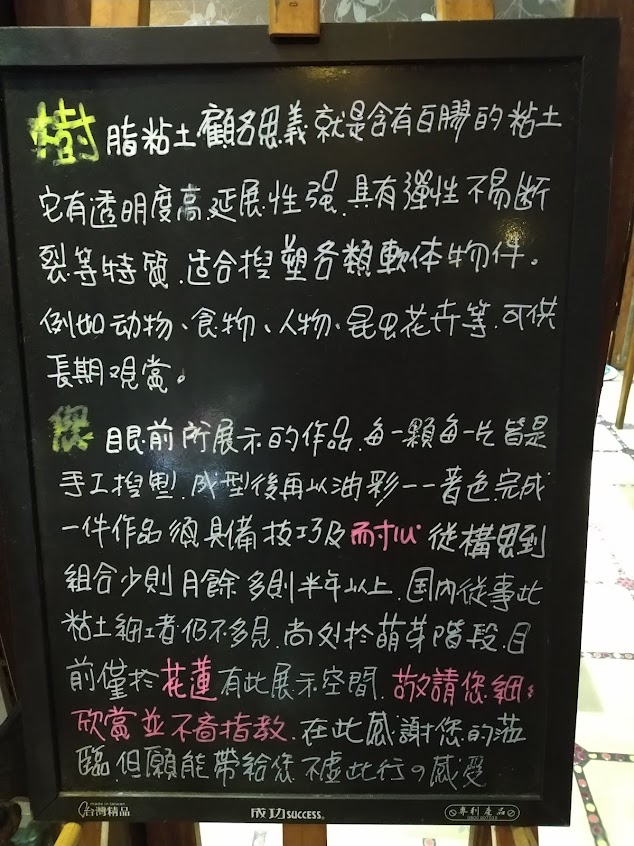 樹脂粘土顧名思義就是含有白膠的粘土
它有透明度高.延展性强.具有彈性不易斷
裂等特質.适合揑塑各類軟体物件。
例如动物、食物、人物、昆虫花卉等.可供
長期观賞。
您眼前所展示的作品.每一顆每一片皆是
手工揑塑.成型後再以油彩一一著色.完成
一件作品須具備技巧及耐心從構思到
組合少則月餘多則半年以上.国內從事此
粘土細工者仍不多見.尚处於萌芽階段.目
前僅於花蓮有此展示空間.敬請您細細
欣賞並不吝指教.在此感謝您的蒞
臨.但願能帶給您不虛此行の感受
made in taiwan
台灣精品
成功SUCCESS®
專利產品